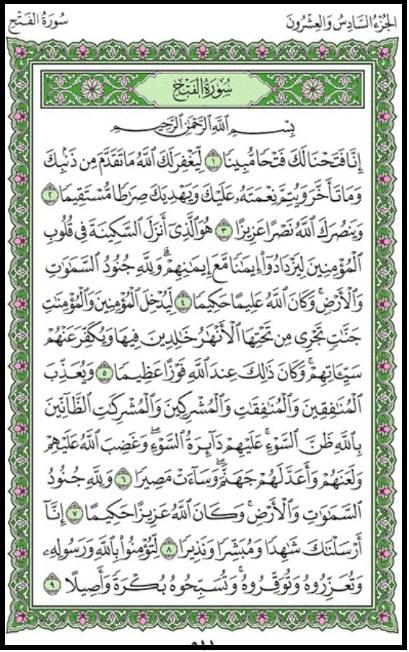 الجُزْءُ السَّادِسُ وَالعِشْرُونَ سُورَةُ الفَتْحِ
سُورَةُ الفَتْحِ
بِسْمِ اللَّهِ الرَّحْمَٰنِ الرَّحِيمِ
إِنَّا فَتَحْنَا لَكَ فَتْحًا مُّبِينًا ١ لِّيَغْفِرَ لَكَ اللَّهُ مَا تَقَدَّمَ مِن ذَنۢبِكَ
وَمَا تَأَخَّرَ وَيُتِمَّ نِعْمَتَهُۥ عَلَيْكَ وَيَهْدِيَكَ صِرَٰطًا مُّسْتَقِيمًا ٢
وَيَنصُرَكَ اللَّهُ نَصْرًا عَزِيزًا ٣ هُوَ الَّذِىٓ أَنزَلَ السَّكِينَةَ فِى قُلُوبِ
الْمُؤْمِنِينَ لِيَزْدَادُوٓا۟ إِيمَٰنًا مَّعَ إِيمَٰنِهِمْ ۗ وَلِلَّهِ جُنُودُ السَّمَٰوَٰتِ
وَالْأَرْضِ ۚ وَكَانَ اللَّهُ عَلِيمًا حَكِيمًا ٤ لِّيُدْخِلَ الْمُؤْمِنِينَ وَالْمُؤْمِنَٰتِ
جَنَّٰتٍ تَجْرِى مِن تَحْتِهَا الْأَنْهَٰرُ خَٰلِدِينَ فِيهَا وَيُكَفِّرَ عَنْهُمْ
سَيِّـَٔاتِهِمْ ۚ وَكَانَ ذَٰلِكَ عِندَ اللَّهِ فَوْزًا عَظِيمًا ٥ وَيُعَذِّبَ
الْمُنَٰفِقِينَ وَالْمُنَٰفِقَٰتِ وَالْمُشْرِكِينَ وَالْمُشْرِكَٰتِ الظَّآنِّينَ
بِاللَّهِ ظَنَّ السَّوْءِ ۚ عَلَيْهِمْ دَآئِرَةُ السَّوْءِ ۖ وَغَضِبَ اللَّهُ عَلَيْهِمْ
وَلَعَنَهُمْ وَأَعَدَّ لَهُمْ جَهَنَّمَ ۖ وَسَآءَتْ مَصِيرًا ٦ وَلِلَّهِ جُنُودُ
السَّمَٰوَٰتِ وَالْأَرْضِ ۚ وَكَانَ اللَّهُ عَزِيزًا حَكِيمًا ٧ إِنَّآ
أَرْسَلْنَٰكَ شَٰهِدًا وَمُبَشِّرًا وَنَذِيرًا ٨ لِّتُؤْمِنُوا۟ بِاللَّهِ وَرَسُولِهِۦ
وَتُعَزِّرُوهُ وَتُوَقِّرُوهُ ۚ وَتُسَبِّحُوهُ بُكْرَةً وَأَصِيلًا ٩